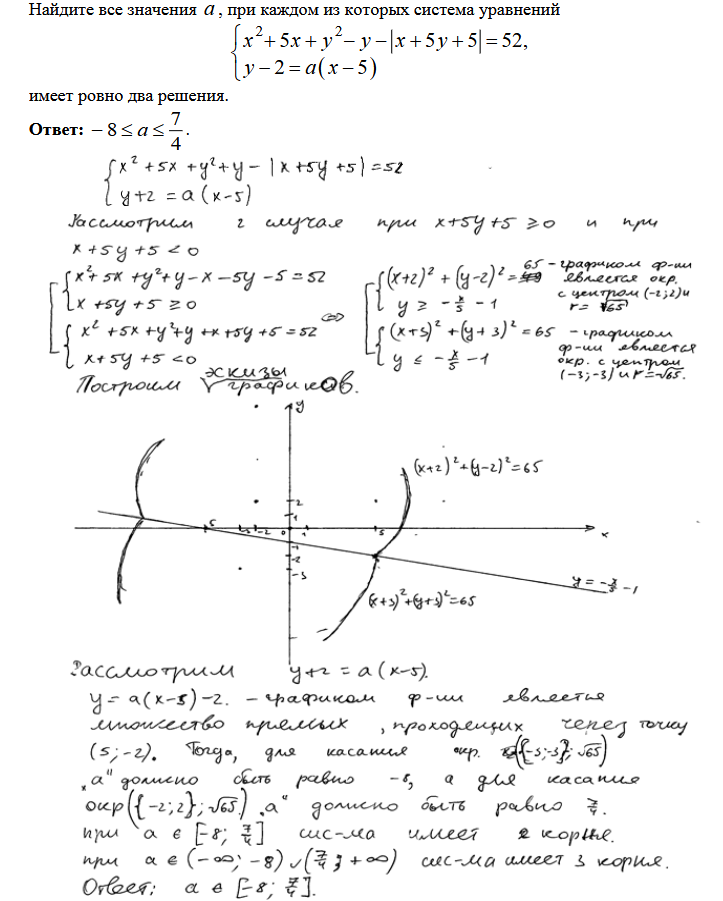 Найдите все значения a, при каждом из которых система уравнений
x²+5x+y²−y−|x+5y+5|=52,
y−2=a(x−5)
имеет ровно два решения.
Ответ: −8≤a≤7/4.
x²+5x+y²+y−|x+5y+5|=52
y+2=a(x-5)
Рассмотрим 2 случая при x+5y+5≥0 и при
x+5y+5<0
x²+5x+y²+y−x−5y−5=52
x+5y+5≥0
x²+5x+y²+y+x+5y+5=52
x+5y+5<0
⇔
(x+2)²+(y−2)²=65 - графиком ф-ии является окр. с центром (-2;2) и r=√65
y≥−x/5−1
(x+3)²+(y+3)²=65 - графиком ф-ии является окр. с центром (-3;-3) и r=√65.
y≤−x/5−1
Построим эскизы графиков.
y
(x+2)²+(y-2)²=65
2
1
5 -3 -2 0 1 5 x
-1
-2
-3
y=−x/5−1
(x+3)²+(y+3)²=65
Рассмотрим y+2=a(x-5).
y=a(x-5)-2. - графиком ф-ии является
множество прямых, проходящих через точку
(5;-2). Тогда, для касания окр. ({-3;-3};√65)
"a" должно быть равно -8, а для касания
окр({-2;2};√65) "a" должно быть равно 7/4.
при a∈[-8;7/4] сис-ма имеет 2 корня.
при a∈(-∞;-8)∪(7/4;+∞) сис-ма имеет 3 корня.
Ответ: a∈[-8;7/4].